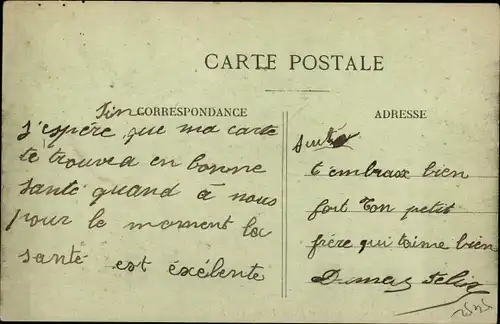 CARTE POSTALE
CORRESPONDANCE
j'espère que ma carte
te trouvea en bonne
santé quand à nous
pour le moment la
santé est éxélente
ADRESSE
suite
t'embrax bien
fort Ton petit
frère qui t'aime bien
Dumas Felix